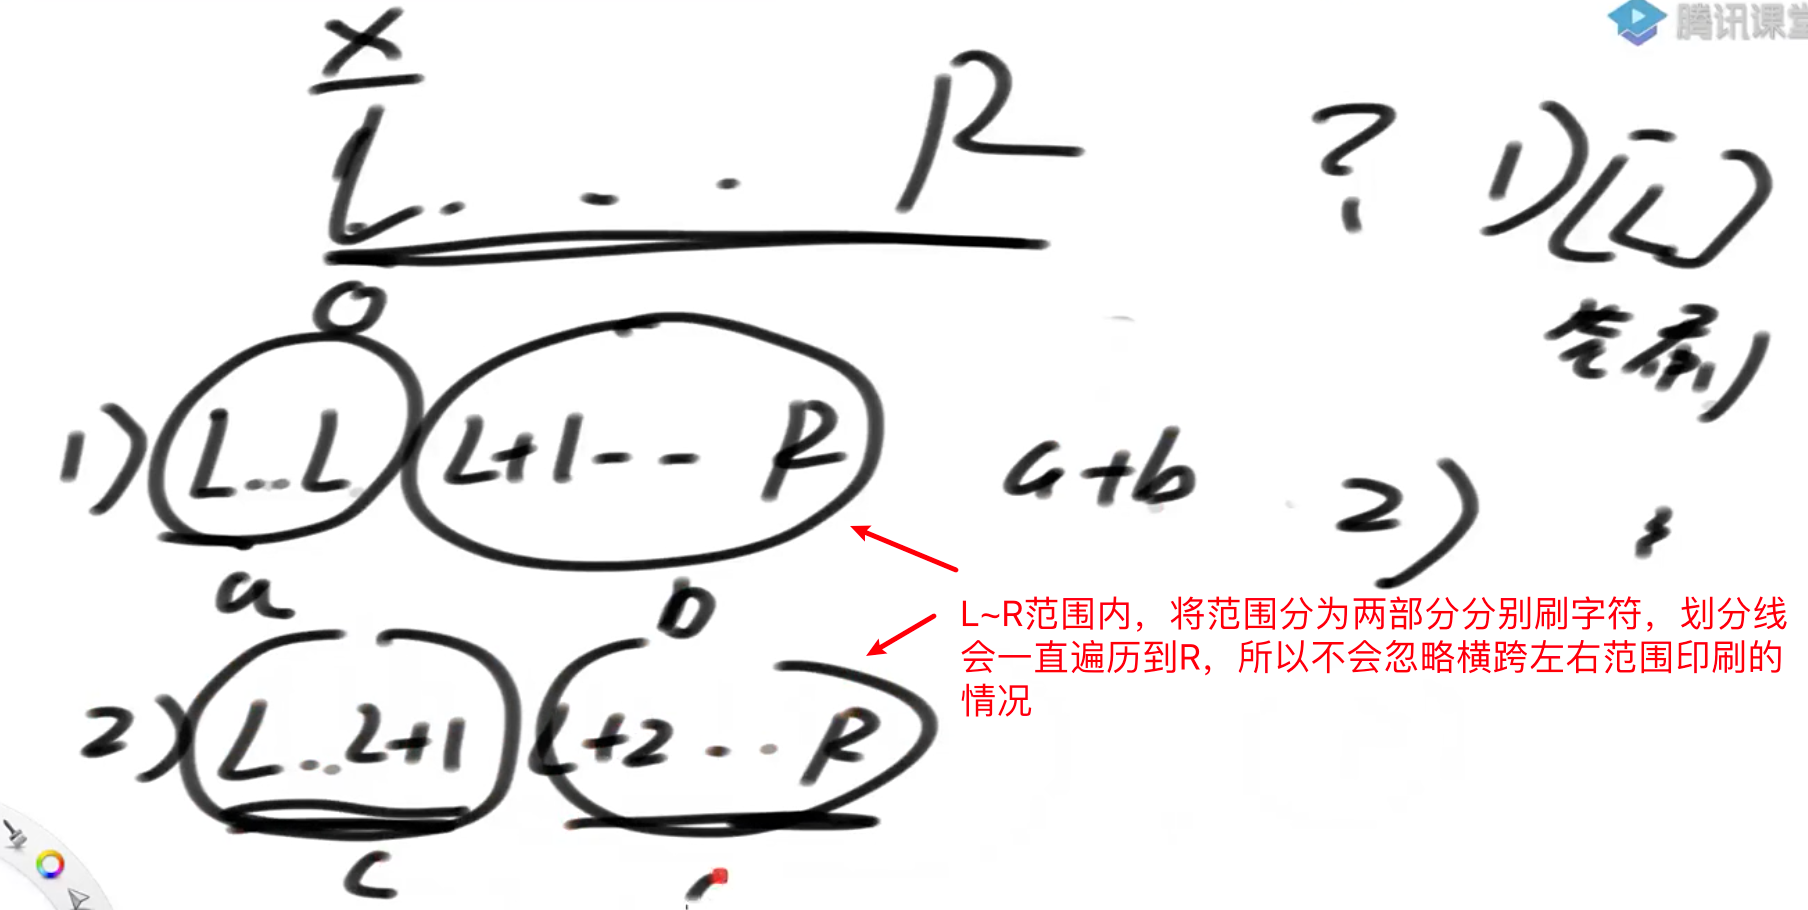 腾讯课堂
X
L . . . R ? 1) [L]
0
1) L...L L+1-- R a+b 2)
a b
L~R范围内，将范围分为两部分分别刷字符，划分线
会一直遍历到R，所以不会忽略横跨左右范围印刷的
情况
2) L..L+1 L+2 .. R
c